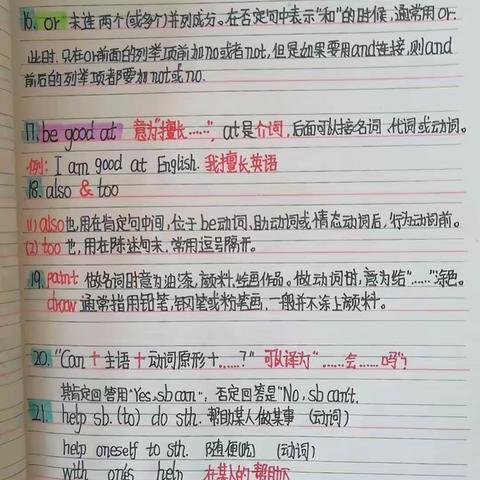 16. or 来连两个(或多个)并列成分。在否定句中表示"和"的时候,通常用or.
此时,只在or前面的列举项前加no或者not,但是如果要用and连接,则and
前后的列举项都要加not或no.
17. be good at 意为"擅长……", at是介词,后面可以接名词、代词或动词。
例: I am good at English. 我擅长英语
18. also & too
(1) also也,用在肯定句中间,位于be动词、助动词或情态动词后,行为动词前。
(2) too 也,用在陈述句末,常用逗号隔开。
19. paint 做名词时意为油漆,颜料,绘画作品。做动词时,意为给"……"涂色。
draw 通常指用铅笔,钢笔或粉笔画,一般并不涂上颜料。
20. "Can + 主语 + 动词原形 + ……?" 可以译为"……会……吗"?
其肯定回答用"Yes, sb can", 否定回答是"No, sb can't.
21. help sb. (to) do sth. 帮助某人做某事 (动词)
help oneself to sth. 随便(吃) (动词)
with one's help 在某人的帮助下